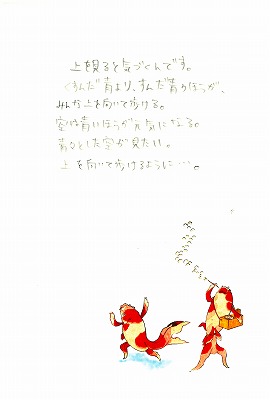 上を見ると気づくんです。
くすんだ青より、すんだ青のほうが、
みんな上を向いて歩ける。
空は青いほうが元気になる。
青々とした空が見たい。
上を向いて歩けるように…。